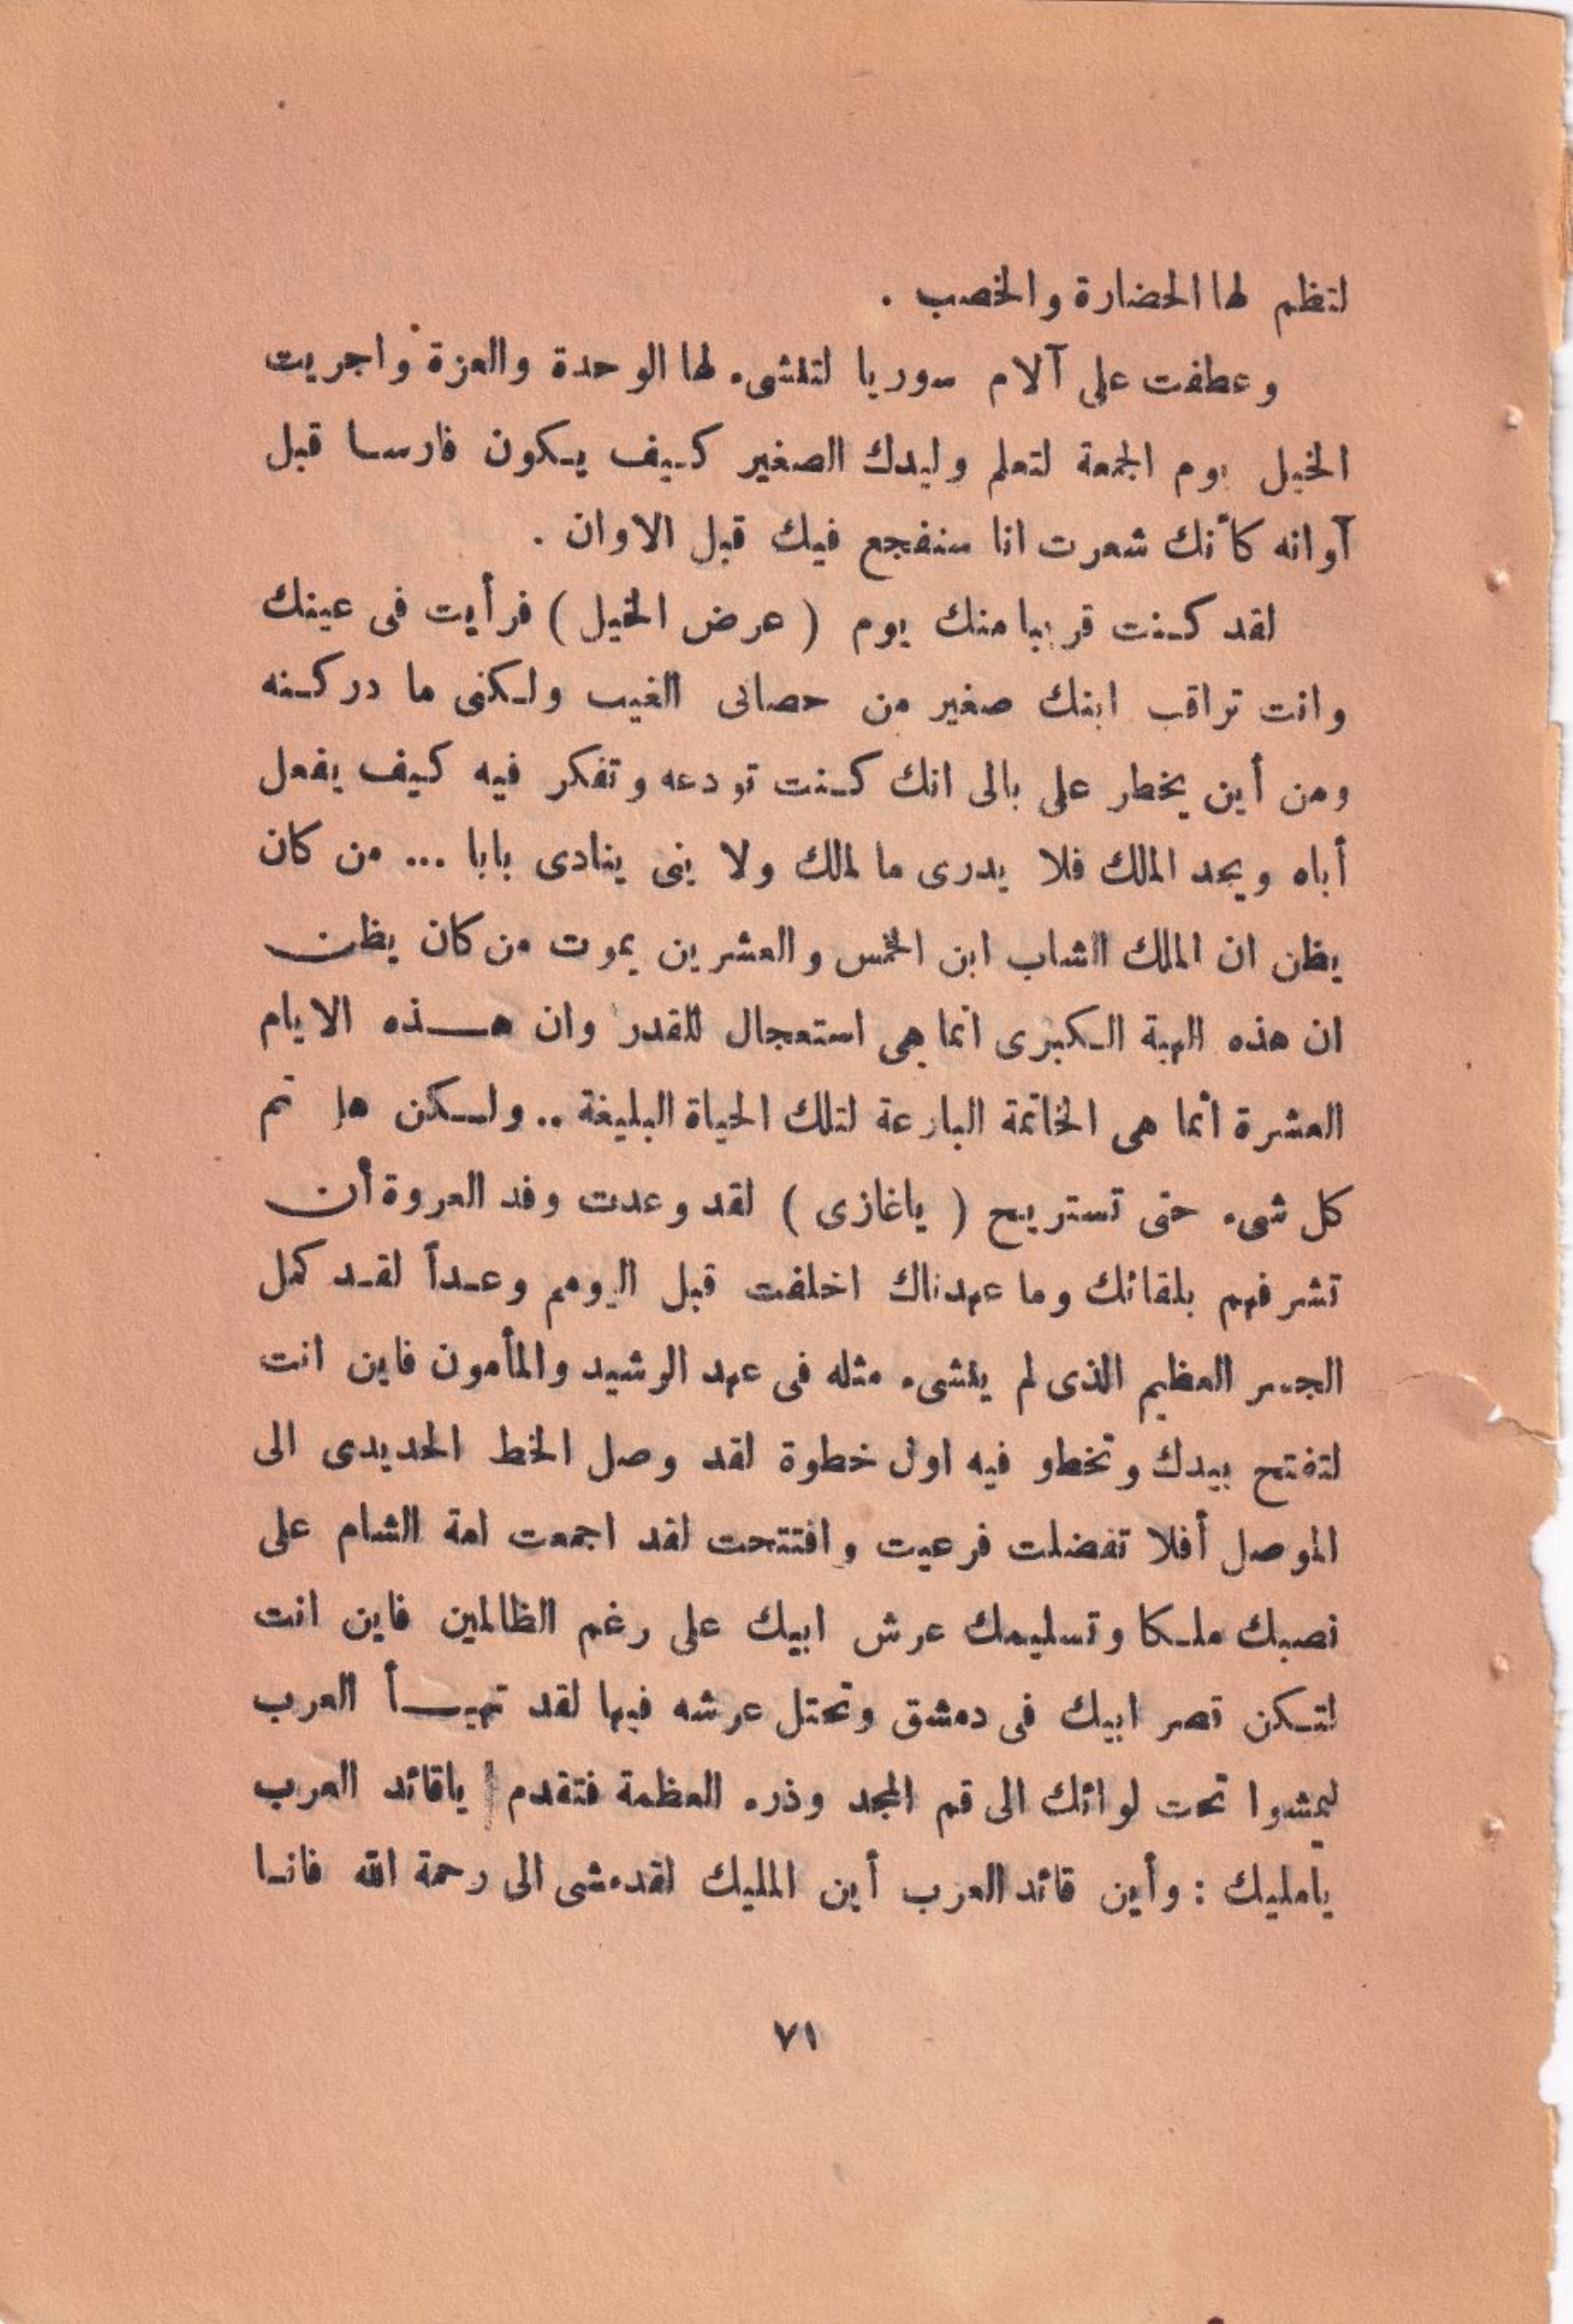 لتظم لها الحضارة والخصب .
وعطفت على آلام سوريا لتنشىء لها الوحدة والعزة واجريت
الخيل يوم الجمعة لتعلم وليدك الصغير كيف يكون فارسا قبل
آوانه كأنك شعرت انا سنفجع فيك قبل الاوان .
لقد كنت قريبا منك يوم ( عرض الخيل ) فرأيت فى عينك
وانت تراقب ابنك صغير من حصانى الغيب ولكنى ما دركنه
ومن أين يخطر على بالى انك كنت تودعه وتفكر فيه كيف يفعل
أباه ويجد الملك فلا يدرى ما لملك ولا ينى ينادى بابا ... من كان
يظن ان الملك الشاب ابن الخمس والعشرين يموت من كان يظن
ان هذه الهبة الكبرى انما هى استعجال للقدر وان هذه الايام
العشرة انما هى الخاتمة البارعة لتلك الحياة البليغة .. ولكن هل تم
كل شىء حتى تستريح ( ياغازى ) لقد وعدت وفد العروة أن
تشرفهم بلقائك وما عهدناك اخلفت قبل اليومم وعداً لقد كمل
الجسر العظيم الذى لم ينشىء مثله فى عهد الرشيد والمأمون فاين انت
لتفتح بيدك وتخطو فيه اول خطوة لقد وصل الخط الحديدى الى
الموصل أفلا تفضلت فرعيت وافتتحت لقد اجمعت امة الشام على
نصبك ملكا وتسليمك عرش ابيك على رغم الظالمين فاين انت
لتكن قصر ابيك فى دمشق وتحتل عرشه فيها لقد تهيأ العرب
ليمشوا تحت لوائك الى قم المجد وذره العظمة فتقدم ياقائد العرب
يامليك : وأين قائد العرب أين المليك لقدمشى الى رحمة الله فانا
٧١